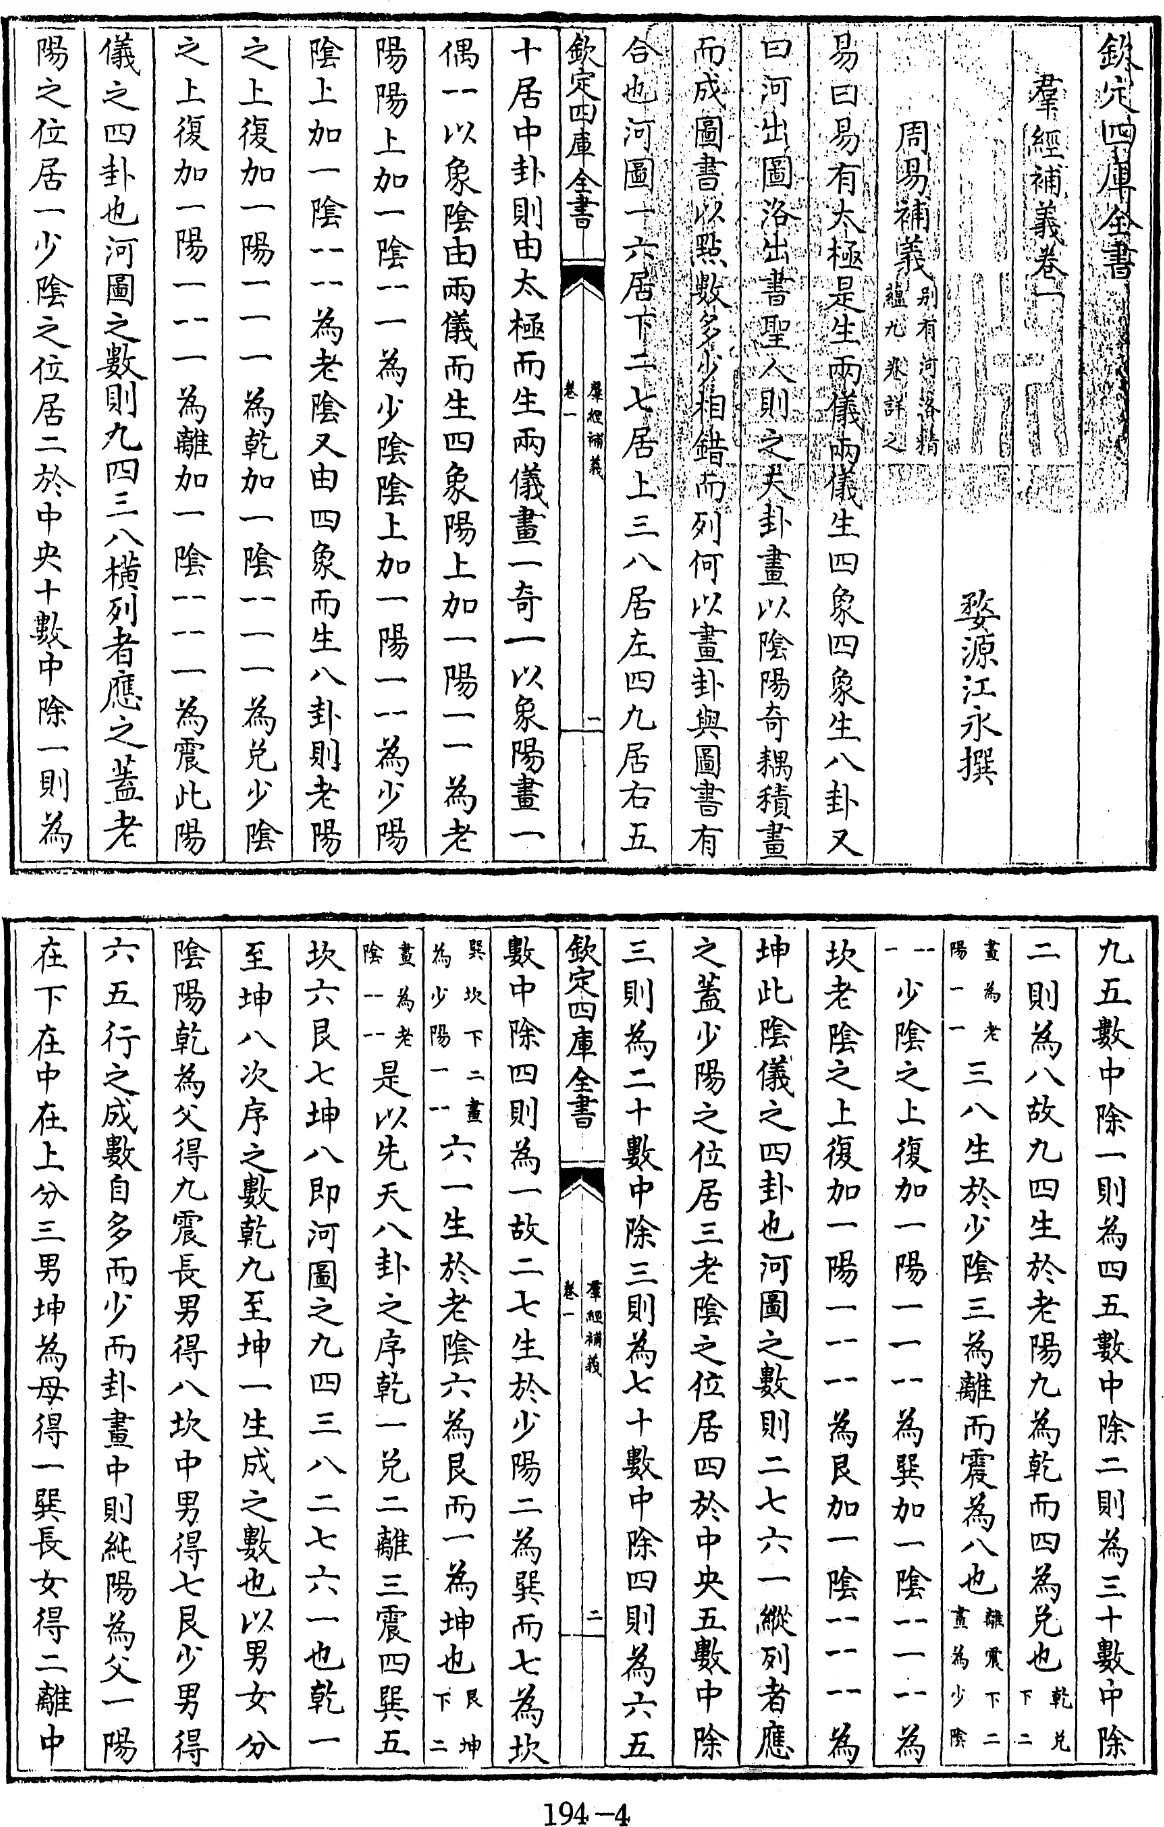 欽定四庫全書
羣經補義卷一
婺源江永撰
周易補義別有河洛精蘊九卷詳之
易曰易有太極是生兩儀兩儀生四象四象生八卦又
曰河出圖洛出書聖人則之夫卦畫以陰陽奇耦積畫
而成圖書以點數多少相錯而列何以畫卦與圖書有
合也河圖一六居下二七居上三八居左四九居右五
欽定四庫全書
羣經補義
卷一
一
十居中卦則由太極而生兩儀畫一奇一以象陽畫一
偶⚋以象陰由兩儀而生四象陽上加一陽⚌為老
陽陽上加一陰⚍為少陰陰上加一陽⚎為少陽
陰上加一陰⚏為老陰又由四象而生八卦則老陽
之上復加一陽☰為乾加一陰☱為兌少陰
之上復加一陽☲為離加一陰☳為震此陽
儀之四卦也河圖之數則九四三八橫列者應之蓋老
陽之位居一少陰之位居二於中央十數中除一則為
九五數中除一則為四五數中除二則為三十數中除
二則為八故九四生於老陽九為乾而四為兌也乾兌下二
畫為老陽⚌三八生於少陰三為離而震為八也離震下二畫為少陰
⚍少陰之上復加一陽☴為巽加一陰☵為
坎老陰之上復加一陽☶為艮加一陰☷為
坤此陰儀之四卦也河圖之數則二七六一縱列者應
之蓋少陽之位居三老陰之位居四於中央五數中除
三則為二十數中除三則為七十數中除四則為六五
欽定四庫全書
羣經補義
卷一
二
數中除四則為一故二七生於少陽二為巽而七為坎
巽坎下二畫為少陽⚎六一生於老陰六為艮而一為坤也艮坤下二
畫為老陰⚏是以先天八卦之序乾一兌二離三震四巽五
坎六艮七坤八即河圖之九四三八二七六一也乾一
至坤八次序之數乾九至坤一生成之數也以男女分
陰陽乾為父得九震長男得八坎中男得七艮少男得
六五行之成數自多而少而卦畫中則純陽為父一陽
在下在中在上分三男坤為母得一巽長女得二離中
194-4